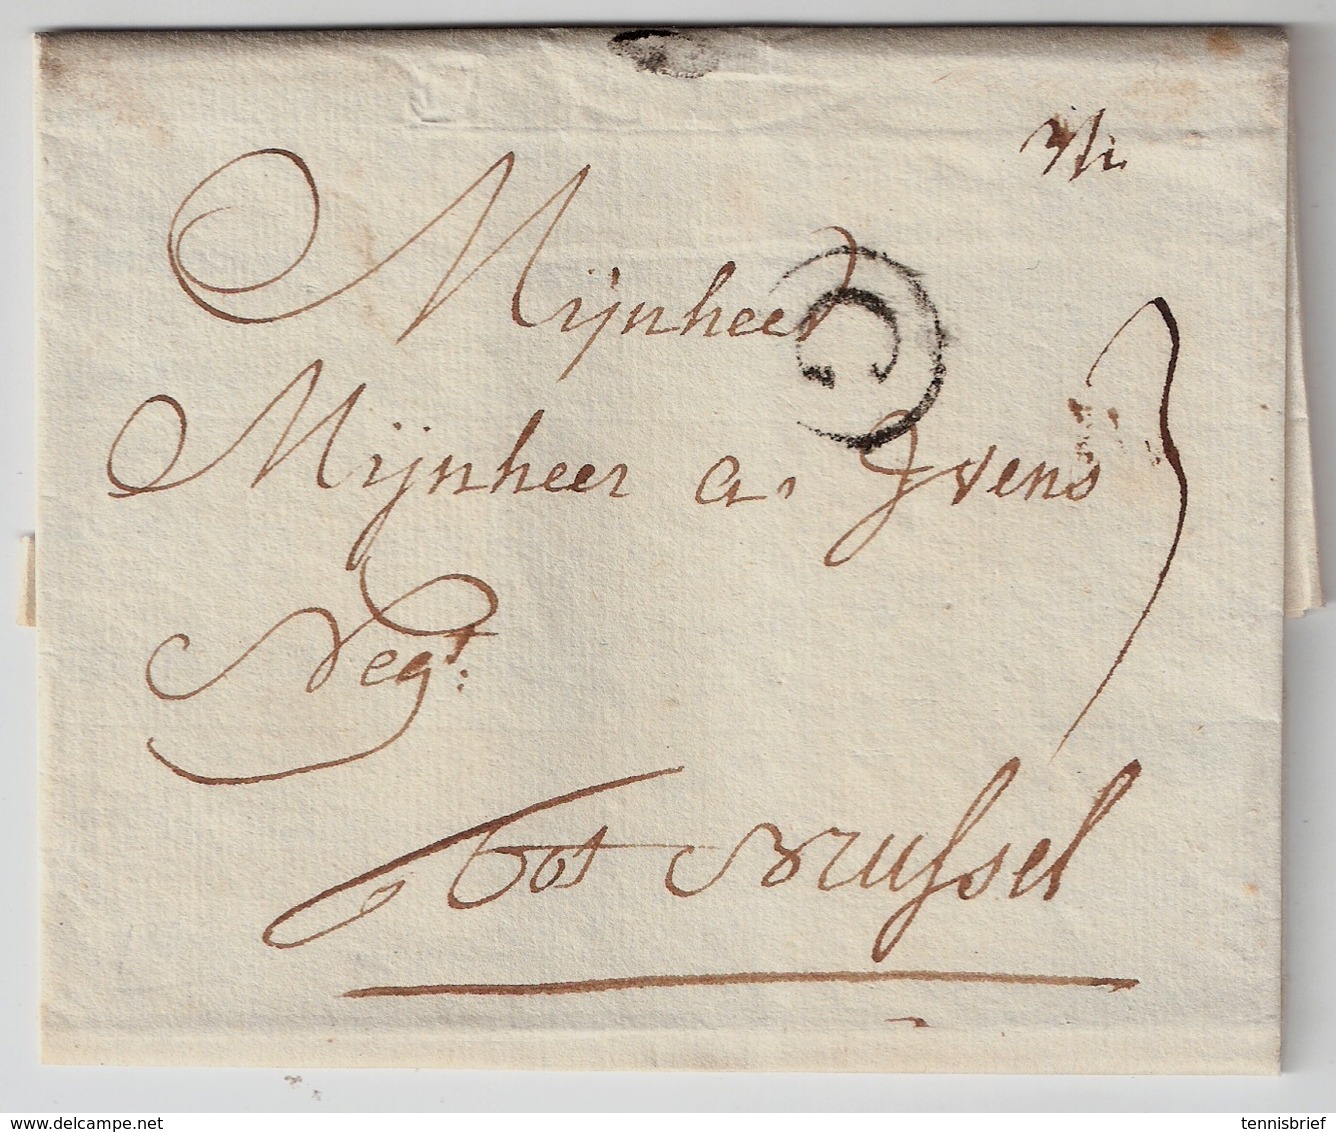 Mijnheer
C
Mijnheer a. Jvens
3
Negt:
tot Brussel
tennisbrief
delcampe.net